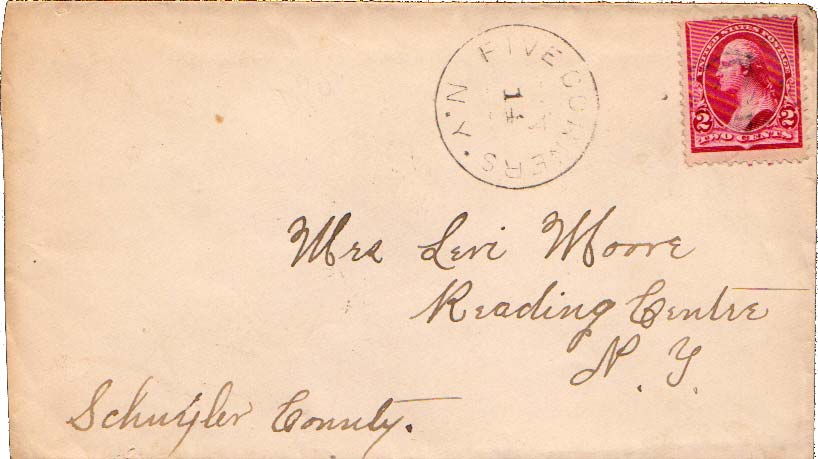 FIVE CORNERS. N.Y.
14
UNITED STATES POSTAGE
2 2
TWO CENTS
Mrs Levi Moore
Reading Centre
N. Y.
Schuyler County.